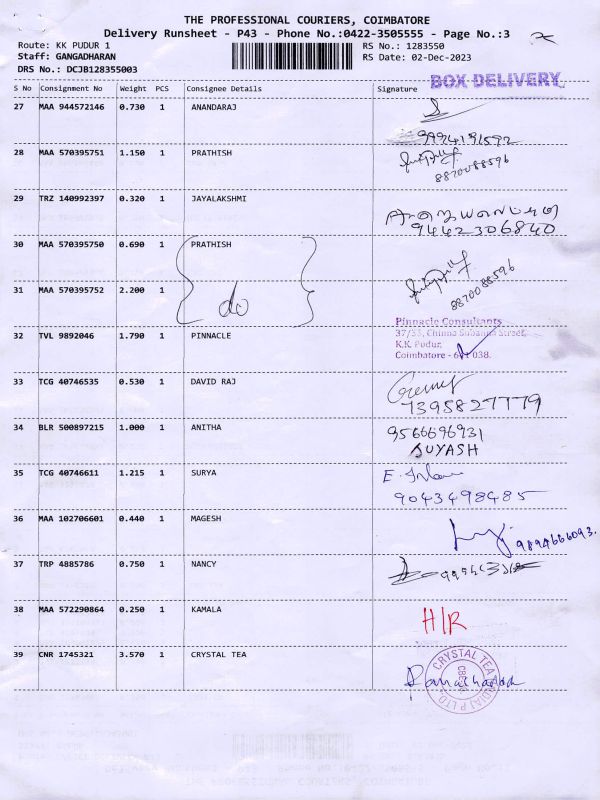 THE PROFESSIONAL COURIERS, COIMBATORE
Delivery Runsheet - P43 - Phone No.:0422-3505555 - Page No.:3
Route: KK PUDUR 1 RS No.: 1283550
Staff: GANGADHARAN RS Date: 02-Dec-2023
DRS No.: DCJB128355003
BOX DELIVERY
S No Consignment No Weight PCS Consignee Details Signature
27 MAA 944572146 0.730 1 ANANDARAJ
9994191592
28 MAA 570395751 1.150 1 PRATHISH
8870088596
29 TRZ 140992397 0.320 1 JAYALAKSHMI
9442306840
30 MAA 570395750 0.690 1 PRATHISH
31 MAA 570395752 2.200 1 do 8870088596
Pinnacle Consultants
32 TVL 9892046 1.790 1 PINNACLE 37/55, Chinna Subanna Street,
K.K. Pudur,
Coimbatore - 641 038.
33 TCG 40746535 0.530 1 DAVID RAJ
7395827779
34 BLR 500897215 1.000 1 ANITHA 9566696931
SUYASH
35 TCG 40746611 1.215 1 SURYA
9043498485
36 MAA 102706601 0.440 1 MAGESH
9894666093.
37 TRP 4885786 0.750 1 NANCY
38 MAA 572290864 0.250 1 KAMALA H/R
39 CNR 1745321 3.570 1 CRYSTAL TEA
CRYSTAL TEA (INDIA) P LTD.